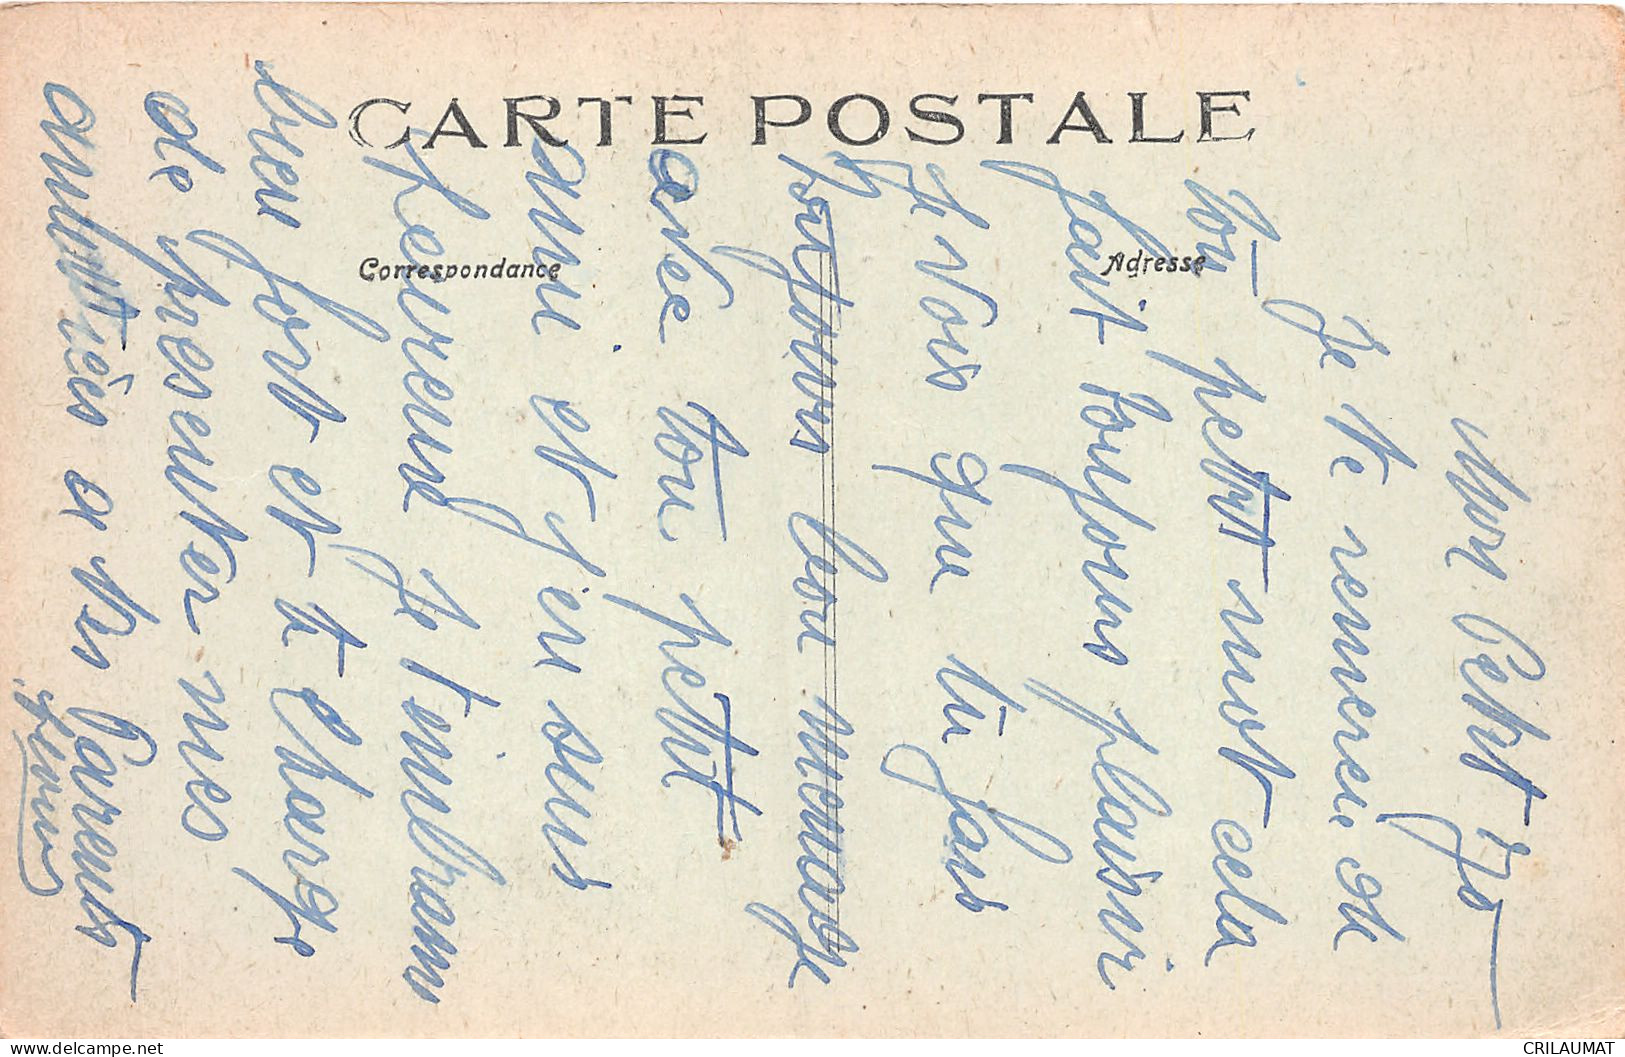 CARTE POSTALE
Correspondance
Adresse
Mon Petit Jo
Je te remercie de
ton petit mot cela
fait toujours plaisir
je vois que tu fais
toujours bon menage
avec ton petit
ami et j'en suis
heureuse je t'embrasse
bien fort et te charge
de presenter mes
amities a tes Parents
delcampe.net
CRILAUMAT